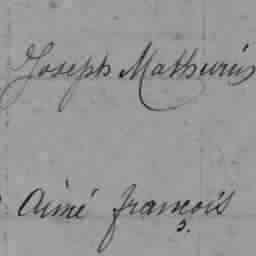 Joseph Mathurin
Aimé françois